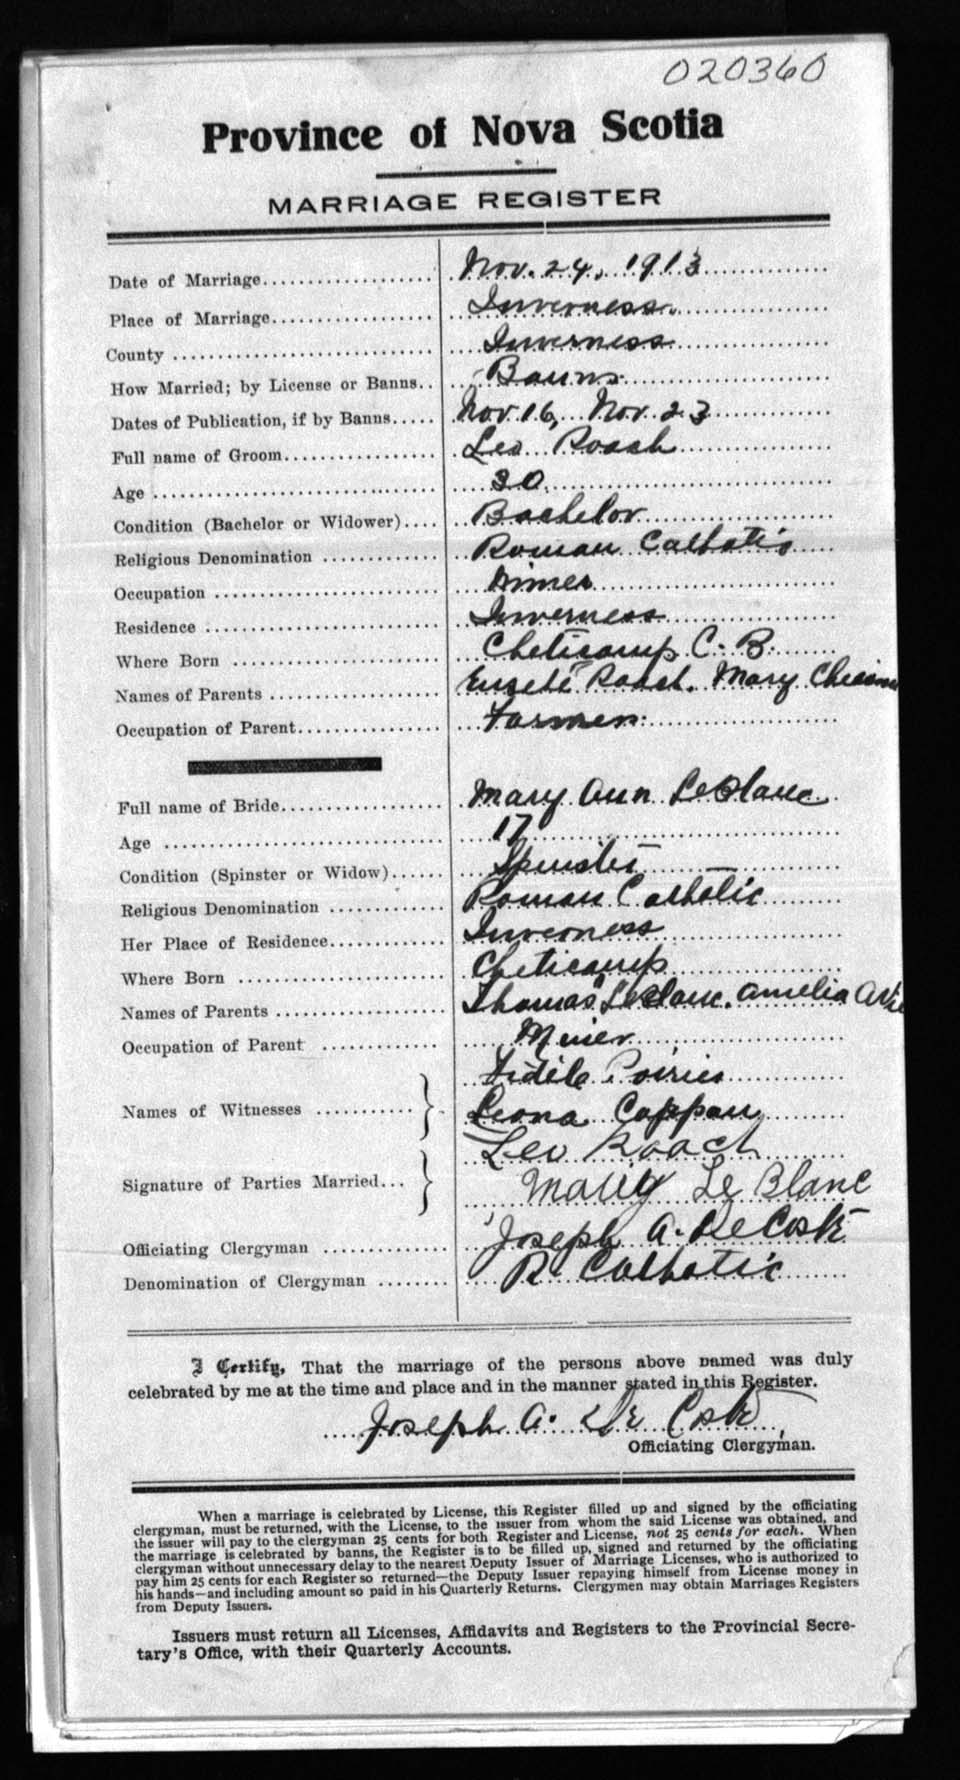 020360
Province of Nova Scotia
MARRIAGE REGISTER
Date of Marriage Nov. 24, 1913
Place of Marriage Inverness
County Inverness
How Married; by License or Banns Banns
Dates of Publication, if by Banns Nov 16, Nov. 23
Full name of Groom Leo Roach
Age 30
Condition (Bachelor or Widower) Bachelor
Religious Denomination Roman Catholic
Occupation Miner
Residence Inverness
Where Born Cheticamp C. B.
Names of Parents Roach. Mary
Occupation of Parent Farmer
Full name of Bride Mary Ann LeBlanc
Age 17
Condition (Spinster or Widow) Spinster
Religious Denomination Roman Catholic
Her Place of Residence Inverness
Where Born Cheticamp
Names of Parents Thomas LeBlanc. Amelia
Occupation of Parent Miner
Names of Witnesses Fidele Poirier
Leona Coppan
Signature of Parties Married Leo Roach
Mary Le Blanc
Officiating Clergyman Joseph A. DeCoste
Denomination of Clergyman R. Catholic
I Certify, That the marriage of the persons above named was duly
celebrated by me at the time and place and in the manner stated in this Register.
Joseph A. De Coste
Officiating Clergyman.
When a marriage is celebrated by License, this Register filled up and signed by the officiating
clergyman, must be returned, with the License, to the issuer from whom the said License was obtained, and
the issuer will pay to the clergyman 25 cents for both Register and License, not 25 cents for each. When
the marriage is celebrated by banns, the Register is to be filled up, signed and returned by the officiating
clergyman without unnecessary delay to the nearest Deputy Issuer of Marriage Licenses, who is authorized to
pay him 25 cents for each Register so returned—the Deputy Issuer repaying himself from License money in
his hands—and including amount so paid in his Quarterly Returns. Clergymen may obtain Marriages Registers
from Deputy Issuers.
Issuers must return all Licenses, Affidavits and Registers to the Provincial Secre-
tary's Office, with their Quarterly Accounts.